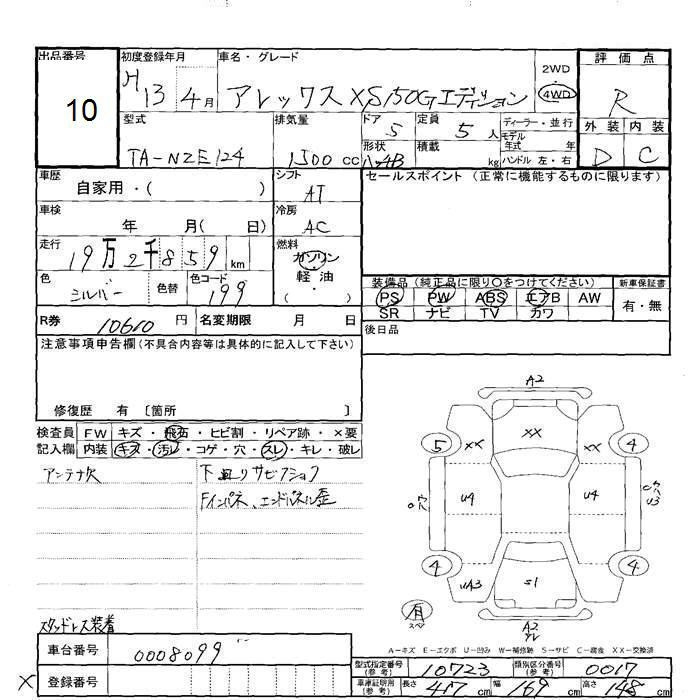 出品番号 初度登録年月 車名・グレード 2WD 評価点
10 H13 4月 アレックス XS150Gエディション 4WD R
型式 排気量 ドア 定員 ディーラー・並行 外装 内装
TA-NZE124 1500cc 5 5人 モデル年式 年 D C
形状 積載 kg ハンドル 左・右
車歴 シフト セールスポイント (正常に機能するものに限ります)
自家用・( ) AT
車検 冷房
年 月( 日) AC
走行 燃料
19万2千859km ガソリン
軽油
・( )
色 色替 色コード 装備品(純正品に限り○をつけてください) 新車保証書
シルバー 199 PS PW ABS エアB AW 有・無
SR ナビ TV カワ
R券 10610円 名変期限 月 日 後日品
注意事項申告欄(不具合内容等は具体的に記入して下さい)
修復歴 有 〔箇所 〕
検査員 FW キズ・飛石・ヒビ割・リペア跡・×要
記入欄 内装 キズ・汚レ・コゲ・穴・スレ・キレ・破レ
アンテナ欠 下廻りサビクション
Fインパネ、エンドパネル歪
A2
XX XX XX
5 4
U9 U4
4 4
UA3 S1
A2
スタッドレス装着
A−キズ E−エクボ U−凹み W−補修跡 S−サビ C−腐食 XX−交換済
車台番号 0008099
型式指定番号(参考) 10723 類別区分番号(参考) 0017
× 登録番号
車庫証明用(参考) 長さ 417cm 幅 169cm 高さ 148cm